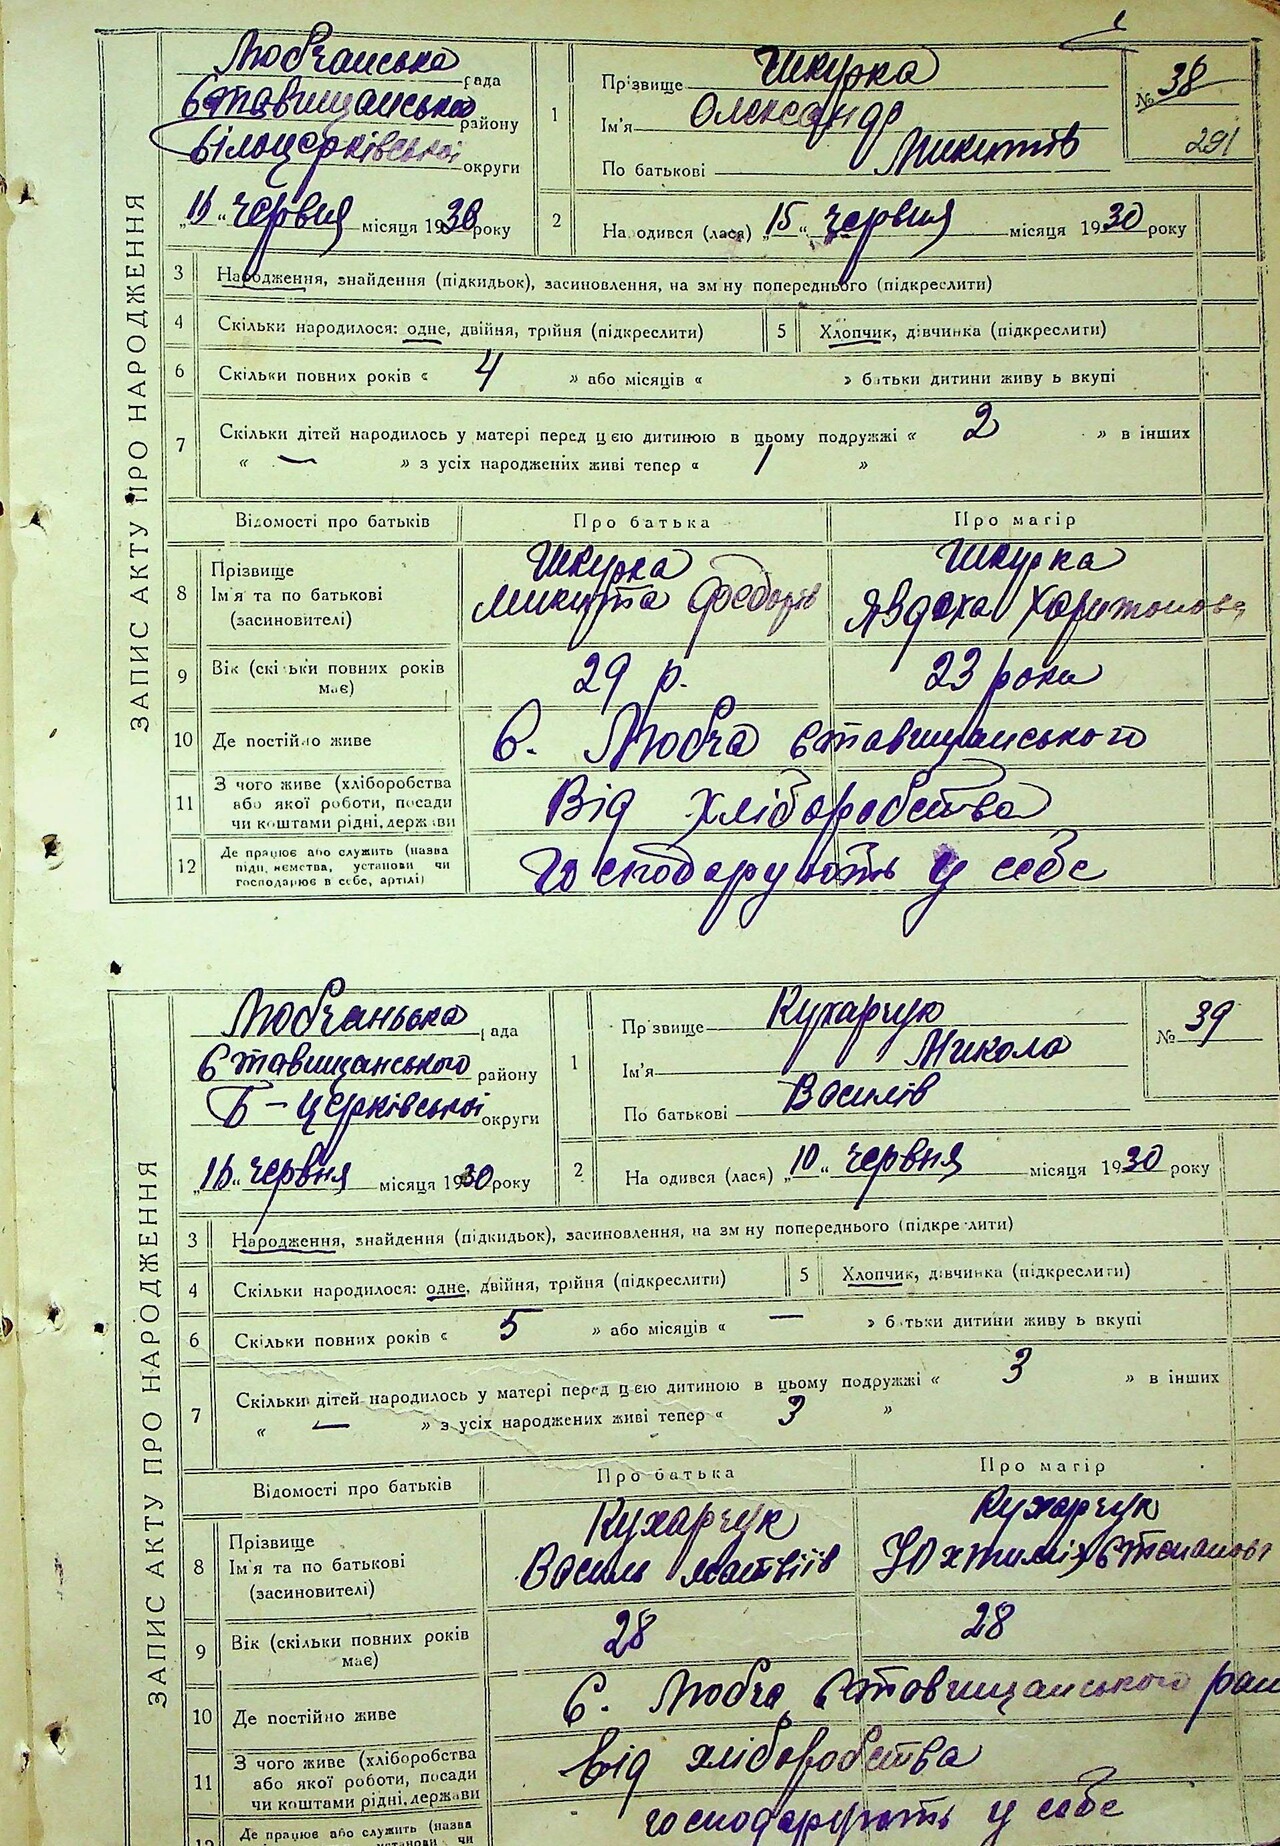 ЗАПИС АКТУ ПРО НАРОДЖЕННЯ
Любчанська рада
Ставищанська району
Білоцерківської округи
„16“ червня місяця 1930 року
1
Прізвище Шкурка
Ім'я Олександр
По батькові Микитів
№ 38
291
2
На одився (лася) „15“ червня місяця 1930 року
3 Народження, знайдення (підкидьок), засиновлення, на зм ну попереднього (підкреслити)
4 Скільки народилося: одне, двійня, трійня (підкреслити)
5 Хлопчик, дівчинка (підкреслити)
6 Скільки повних років « 4 » або місяців « » батьки дитини живу ь вкупі
7 Скільки дітей народилось у матері перед цією дитиною в цьому подружжі « 2 » в інших
« — » з усіх народжених живі тепер « 1 »
Відомості про батьків Про батька Про матір
8 Прізвище Шкурка Шкурка
Ім'я та по батькові Микита Федорів Явдоха Харитонова
(засиновителі)
9 Вік (скільки повних років має) 29 р. 23 рока
10 Де постійно живе С. Любча Ставищанського
11 З чого живе (хліборобства або якої роботи, посади чи коштами рідні, держави Від хліборобства
12 Де працює або служить (назва підприємства, установи чи господарює в себе, артілі) Господарують у себе
ЗАПИС АКТУ ПРО НАРОДЖЕННЯ
Любчанська рада
Ставищанського району
Б-церківської округи
„16“ червня місяця 1930 року
1
Пр звище Кухарчук
Ім'я Микола
По батькові Василів
№ 39
2
На одився (лася) „10“ червня місяця 1930 року
3 Народження, знайдення (підкидьок), засиновлення, на зм ну попереднього (підкре лити)
4 Скільки народилося: одне, двійня, трійня (підкреслити)
5 Хлопчик, дівчинка (підкреслити)
6 Скільки повних років « 5 » або місяців « — » батьки дитини живу ь вкупі
7 Скільки дітей народилось у матері перед цією дитиною в цьому подружжі « 3 » в інших
« — » з усіх народжених живі тепер « 3 »
Відомості про батьків Про батька Про матір
8 Прізвище Кухарчук Кухарчук
Ім'я та по батькові Василь Матвіїв Степанов
(засиновителі)
9 Вік (скільки повних років має) 28 28
10 Де постійно живе С. Любча Ставищанського рай
11 З чого живе (хліборобства або якої роботи, посади чи коштами рідні, держави Від хліборобства
12 Де працює або служить (назва установи чи господарують у себе